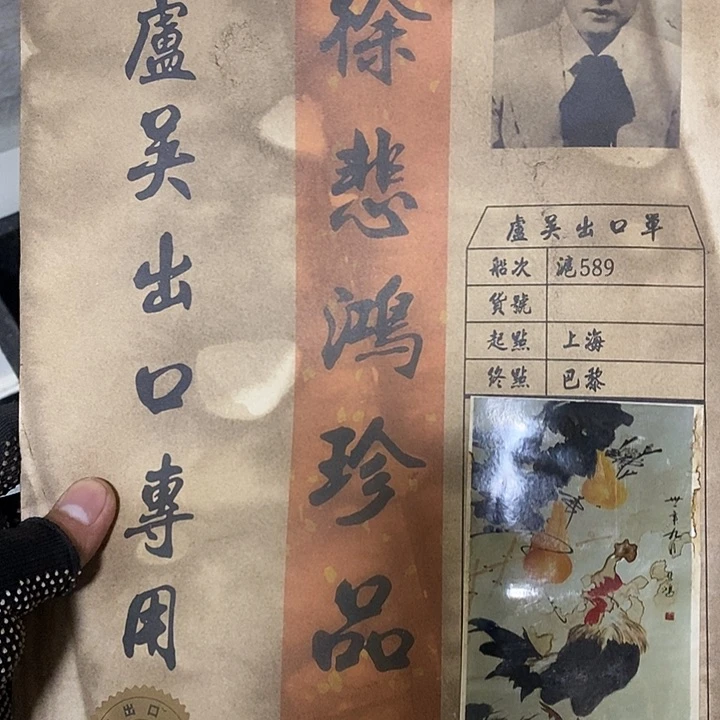 徐悲鴻珍品
盧吴出口專用
盧吴出口單
船次 滬589
貨號
起點 上海
終點 巴黎
出口